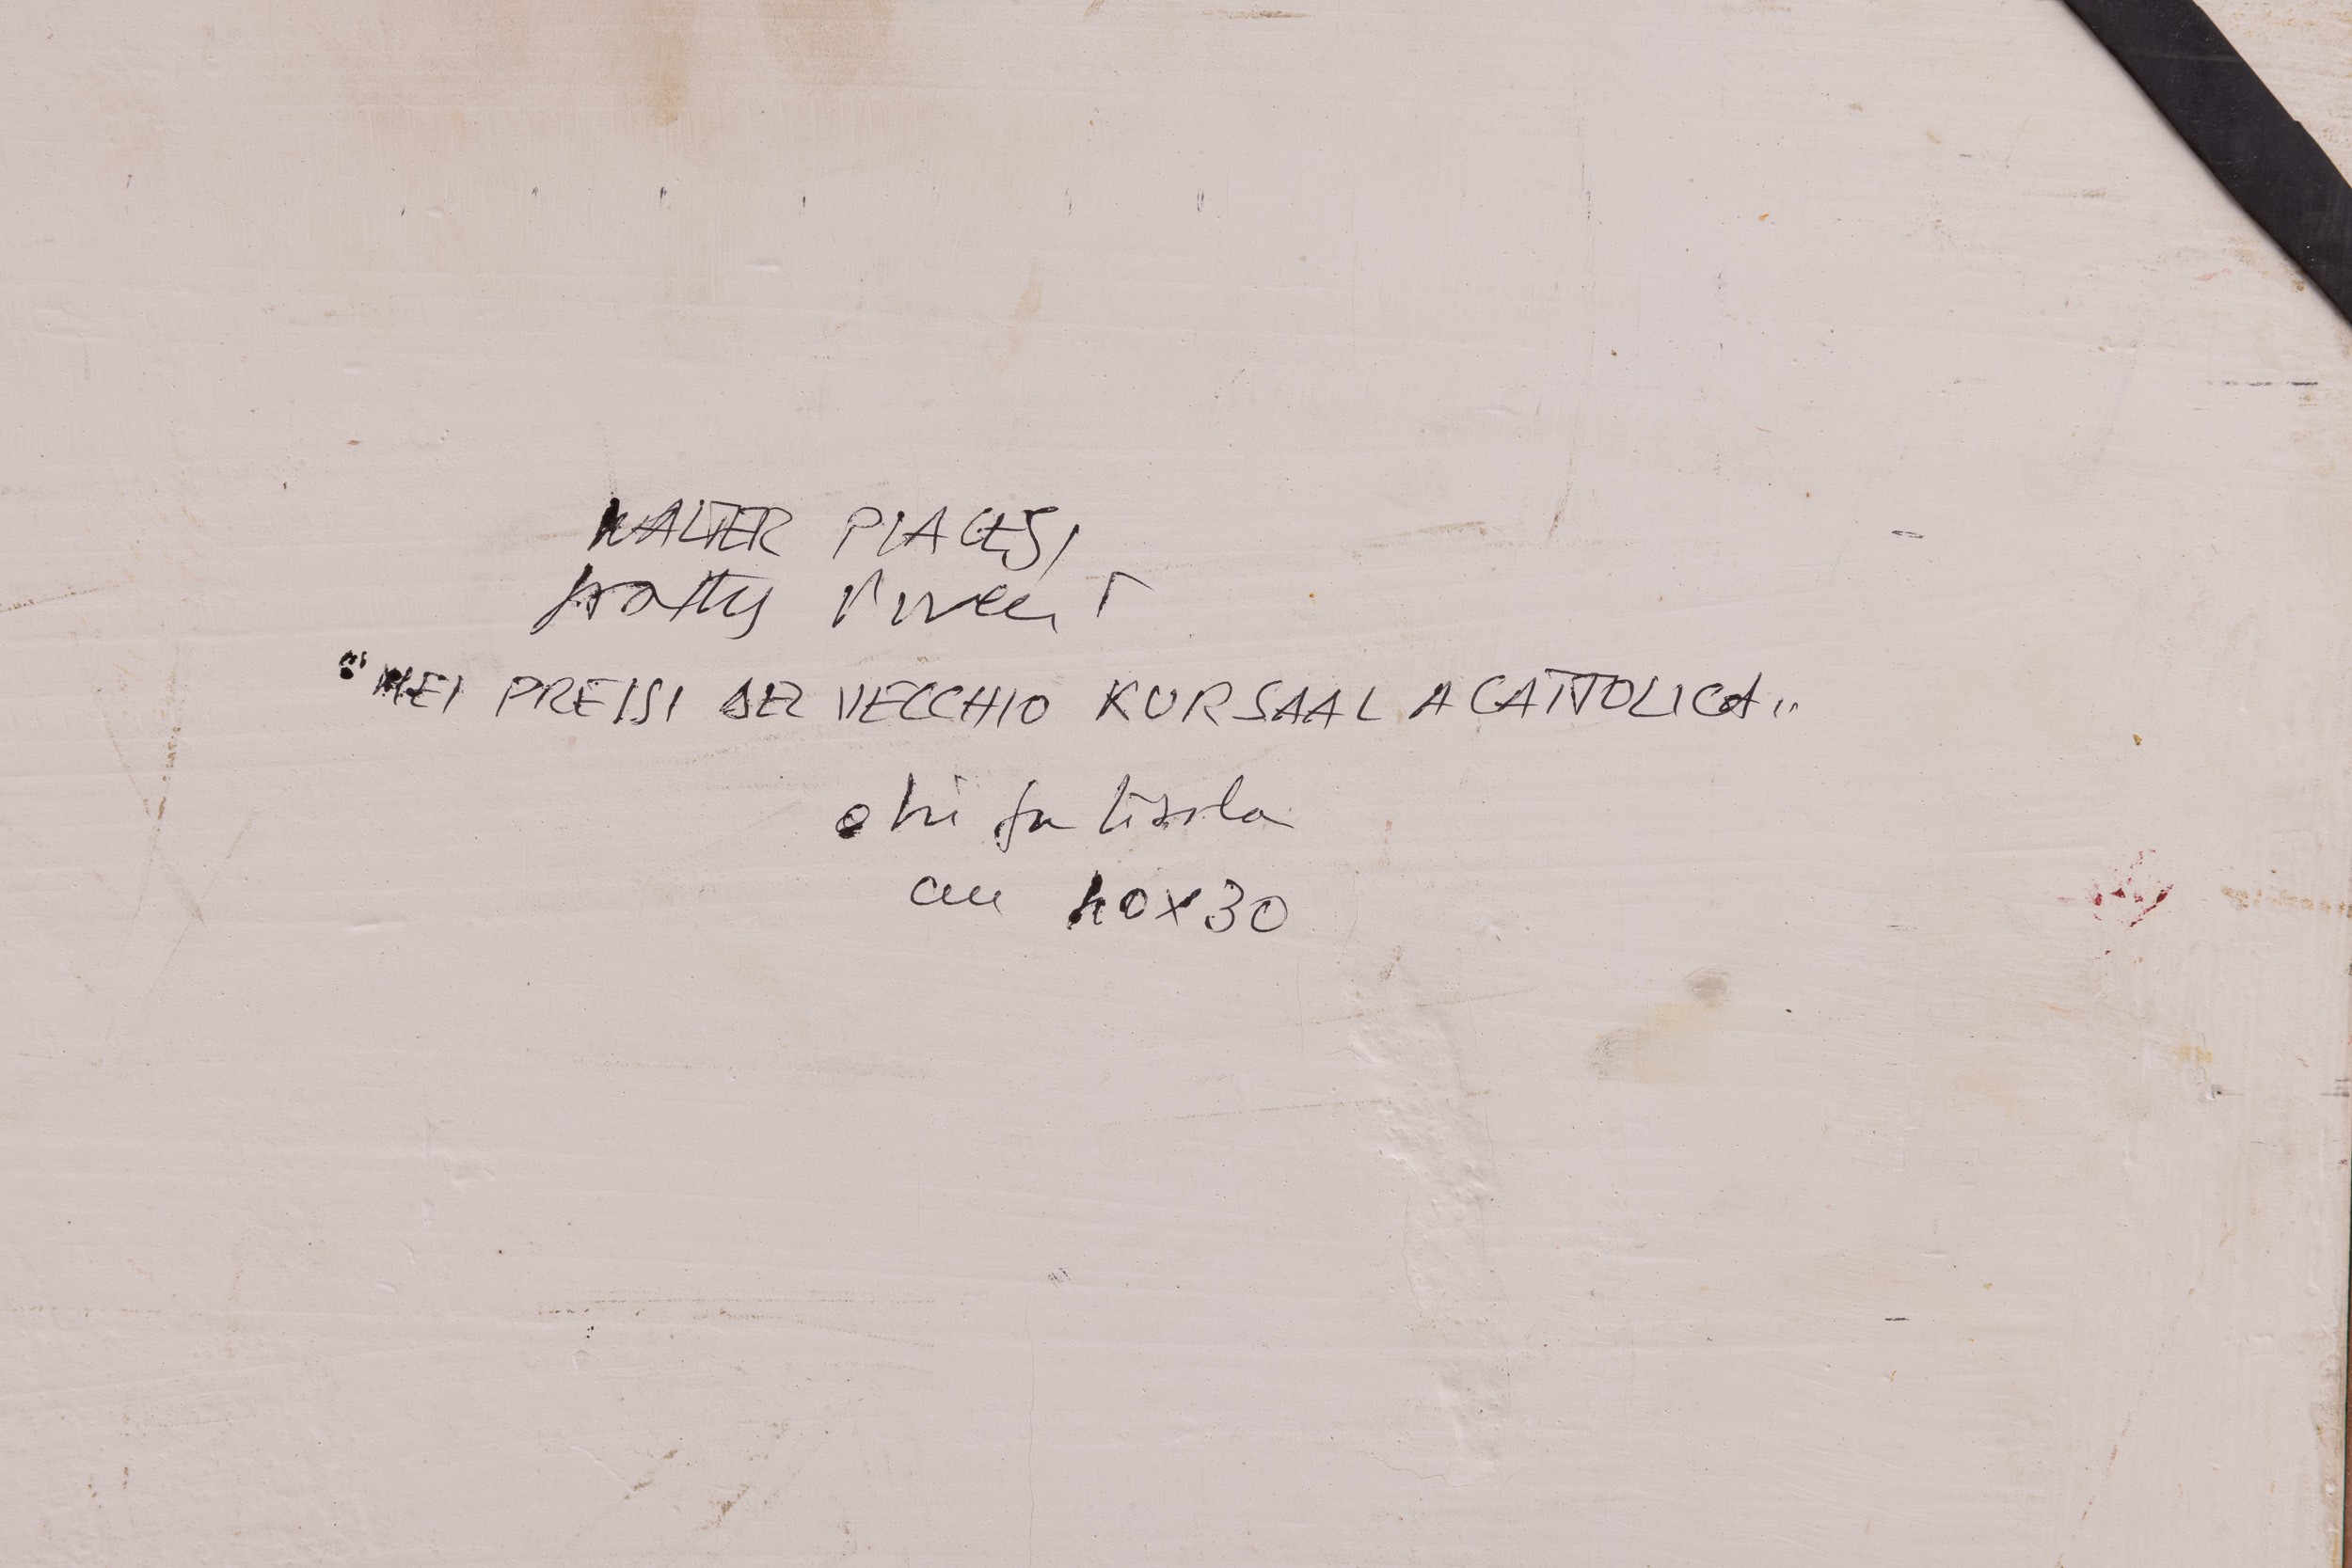 WALTER PIACESI
"NEI PRESSI DEL VECCHIO KURSAAL A CATTOLICA"
olii su tavola
cm 40x30